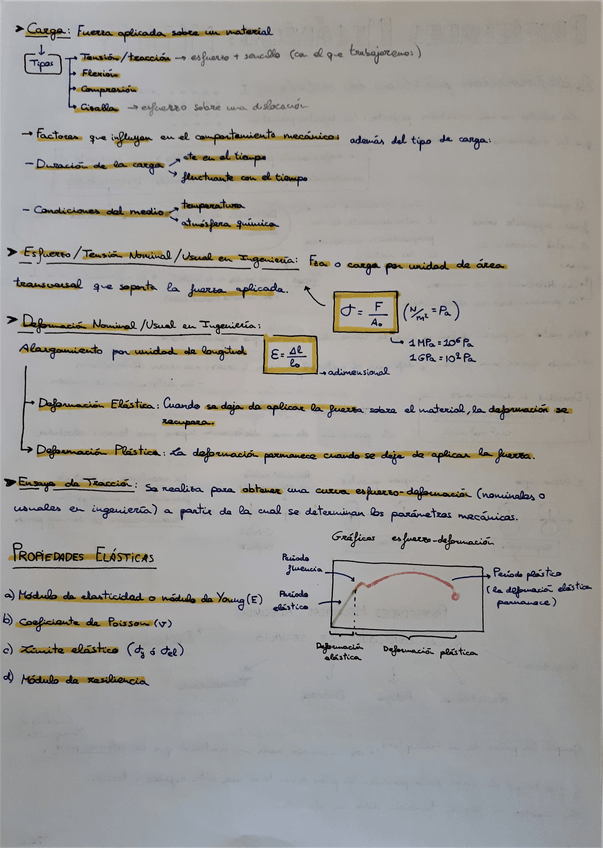 ➤ Carga: Fuerza aplicada sobre un material
Tipos
→ Tensión/tracción → esfuerzo + sencillo (con el que trabajaremos)
→ Flexión
→ Compresión
→ Cizalla → esfuerzo sobre una dislocación
→ Factores que influyen en el comportamiento mecánico: además del tipo de carga:
- Duración de la carga
cte en el tiempo
fluctuante con el tiempo
- Condiciones del medio
temperatura
atmósfera química
➤ Esfuerzo/Tensión Nominal/Usual en Ingeniería: Fza o carga por unidad de área
transversal que soporta la fuerza aplicada.
σ = F/A₀ (N/m² = Pa)
→ 1 MPa = 10⁶ Pa
1 GPa = 10⁹ Pa
➤ Deformación Nominal/Usual en Ingeniería:
Alargamiento por unidad de longitud
ε = Δl/l₀
→ adimensional
→ Deformación Elástica: Cuando se deja de aplicar la fuerza sobre el material, la deformación se
recupera.
→ Deformación Plástica: La deformación permanece cuando se deja de aplicar la fuerza.
➤ Ensayo de Tracción: Se realiza para obtener una curva esfuerzo-deformación (nominales o
usuales en ingeniería) a partir de la cual se determinan los parámetros mecánicos.
Gráficas esfuerzo-deformación
PROPIEDADES ELÁSTICAS
Período
fluencia
Período
elástico
Período plástico
(la deformación elástica
permanece)
Deformación
elástica
Deformación plástica
a) Módulo de elasticidad o módulo de Young (E)
b) Coeficiente de Poisson (ν)
c) Límite elástico (σy ó σel)
d) Módulo de resiliencia